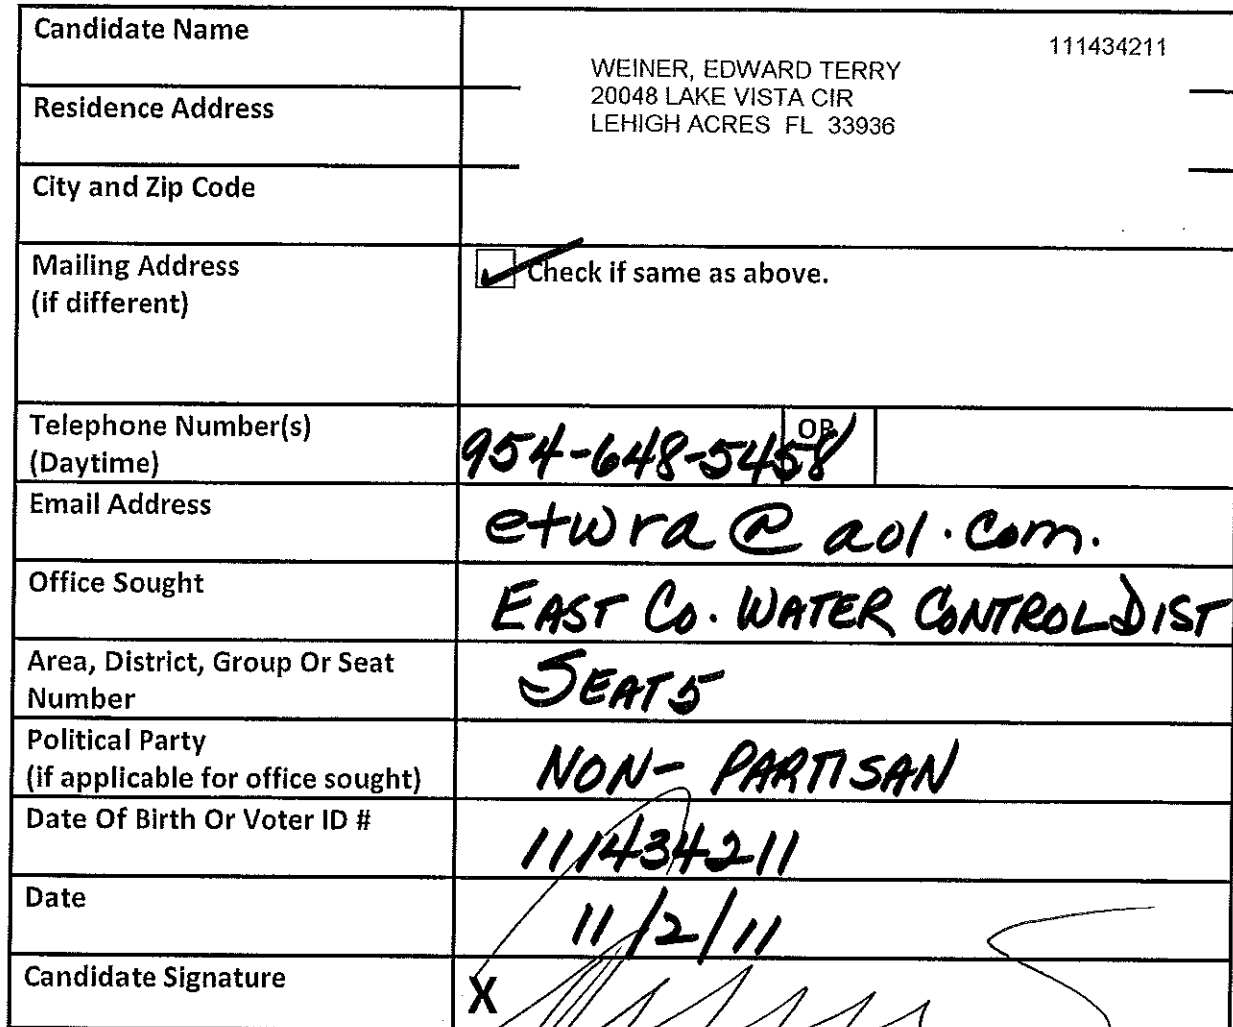 Candidate Name
111434211
WEINER, EDWARD TERRY
Residence Address
20048 LAKE VISTA CIR
LEHIGH ACRES FL 33936
City and Zip Code
Mailing Address
(if different)
Check if same as above.
Telephone Number(s)
(Daytime)
954-648-5458
OR
Email Address
etwra@aol.com.
Office Sought
EAST CO. WATER CONTROL DIST
Area, District, Group Or Seat
Number
SEAT 5
Political Party
(if applicable for office sought)
NON-PARTISAN
Date Of Birth Or Voter ID #
111434211
Date
11/2/11
Candidate Signature
X